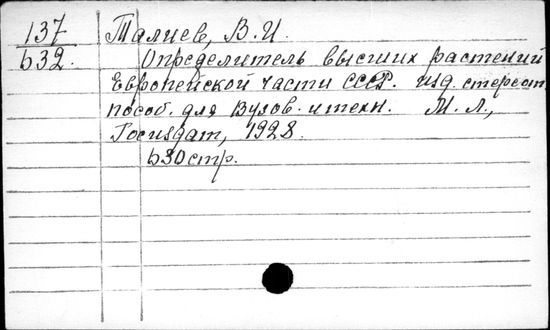 137 Талиев, В.И.
632. Определитель высших растений
Европейской части СССР. изд. стереот.
пособ. для Вузов. и техн. М. Л.,
Госиздат, 1928.
630 стр.